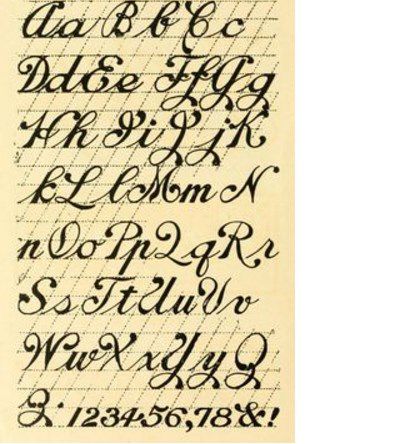 Aa Bb Cc
Dd Ee Ff Gg
Hh Ii Jj K
k Ll Mm N
n Oo Pp Qq Rr
Ss Tt Uu Vv
Ww Xx Yy Z
z 1234.56,78 &!